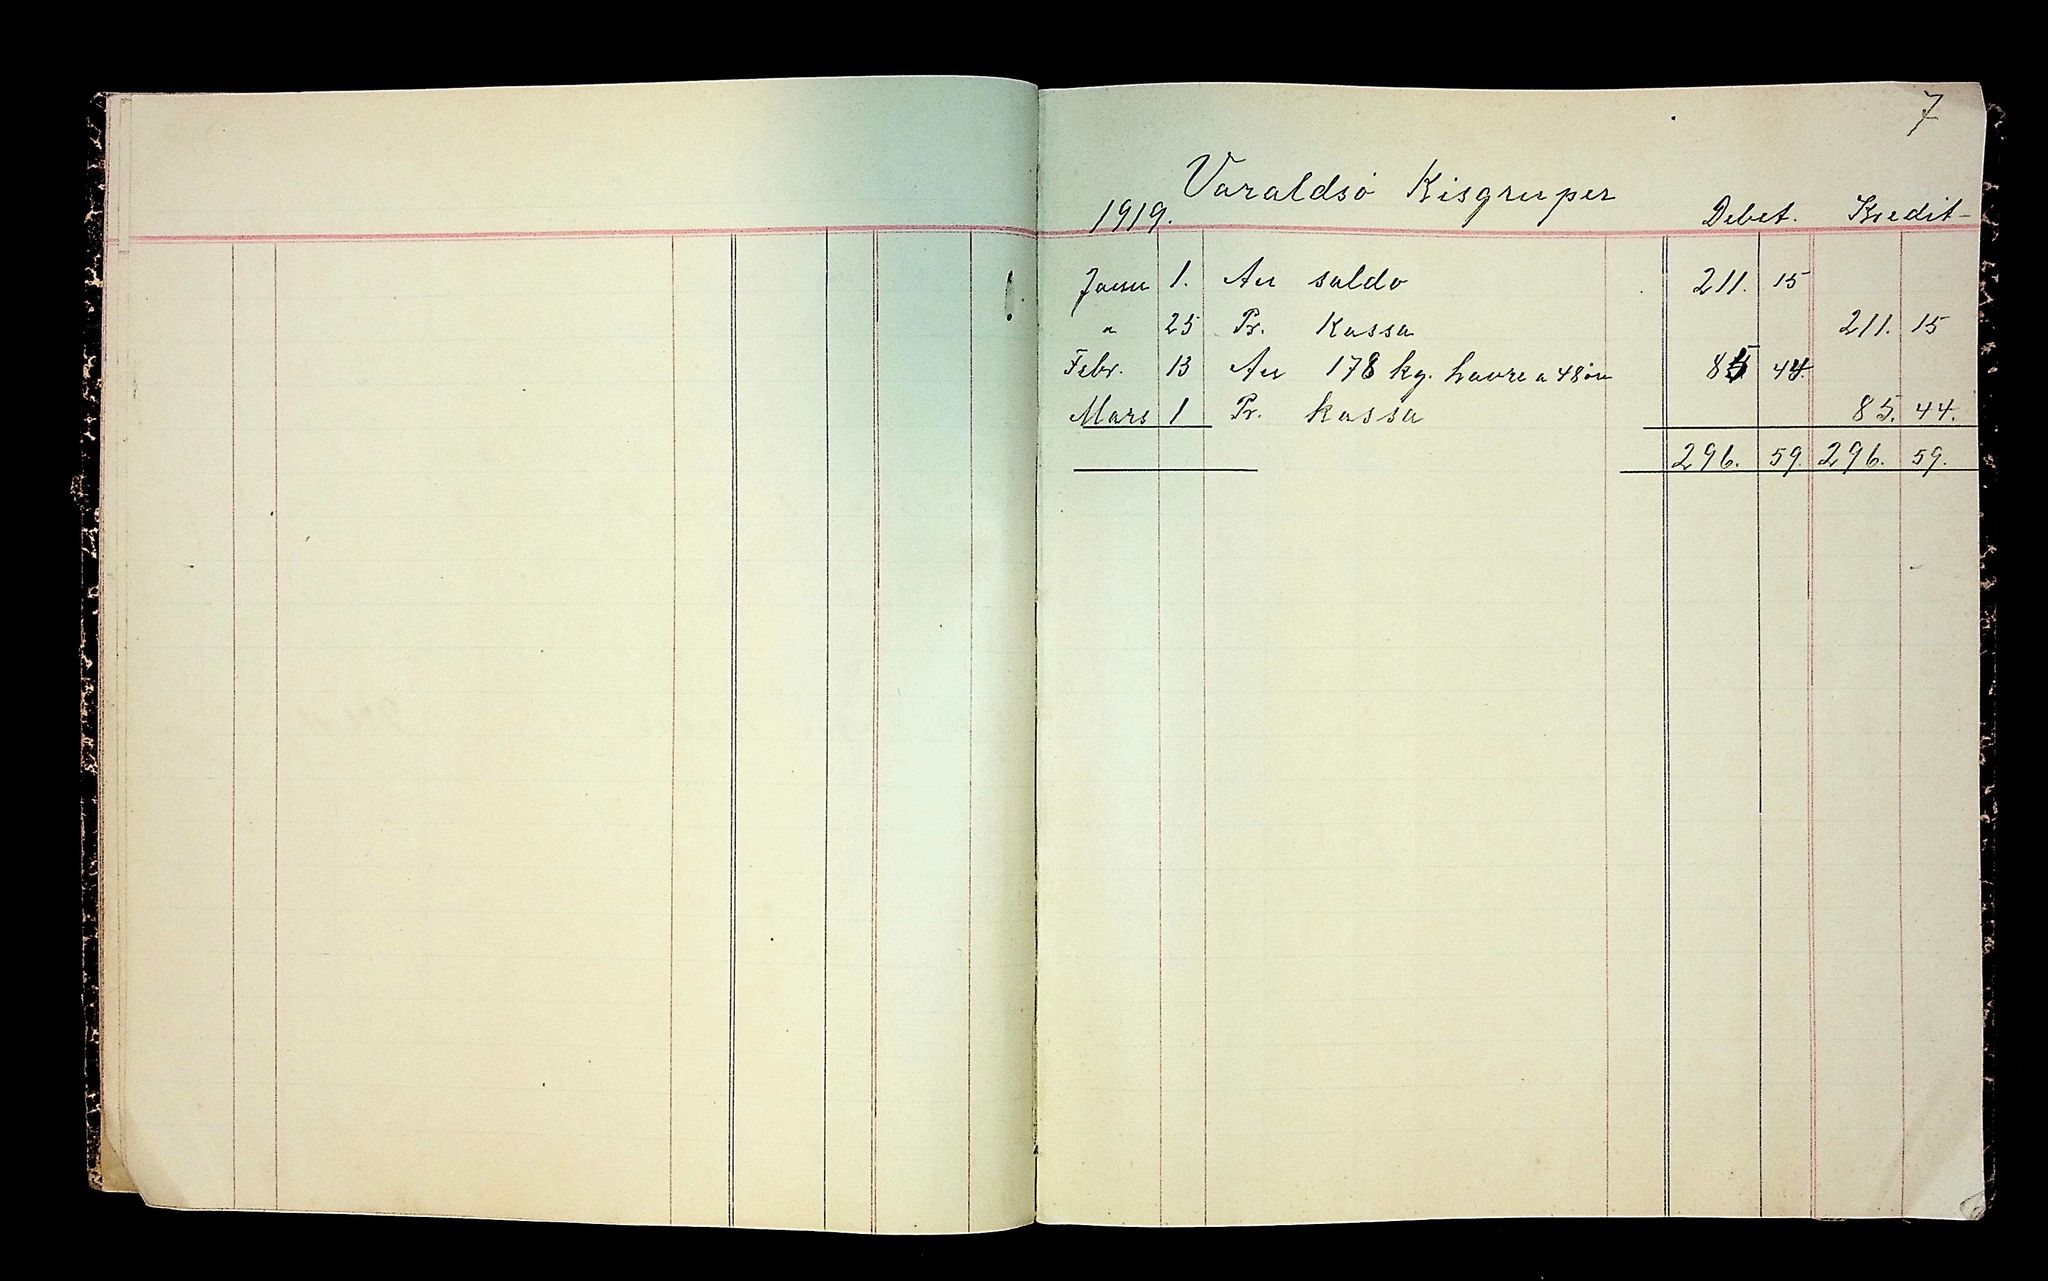 7
Varaldsö Kisgruper
1919. Debet. Kredit
Janu 1. An saldo 211. 15
" 25 Pr. Kassa 211. 15
Febr. 13 An 178 kg. havre a 48 öre 85 44.
Mars 1 Pr. kassa 85. 44.
296. 59. 296. 59.